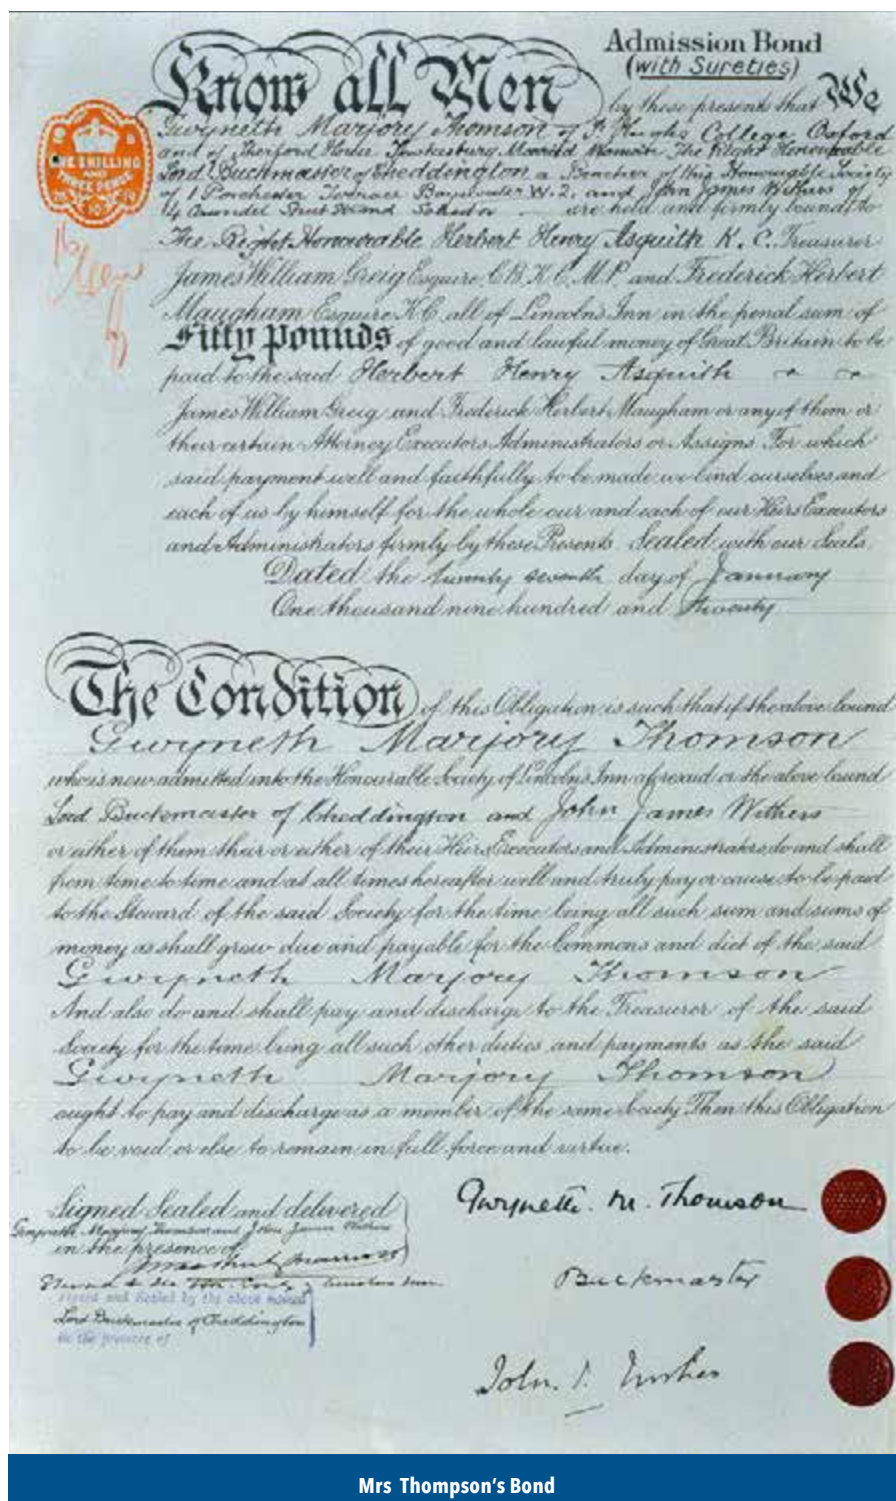 Admission Bond
(with Sureties)
Know all Men by these presents that We
Gwyneth Marjory Thomson of St Hughs College Oxford
and of House Tewkesbury Married Woman The Right Honourable
Lord Buckmaster of Cheddington a Bencher of this Honourable Society
of 1 Porchester Terrace Bayswater W.2, and John James Withers of
4 Arundel Street Strand Solicitor are held and firmly bound to
ONE SHILLING
AND
THREE PENCE
The Right Honourable Herbert Henry Asquith K.C. Treasurer
James William Greig Esquire C.B. K.C. M.P. and Frederick Herbert
Maugham Esquire K.C. all of Lincoln's Inn in the penal sum of
Fifty Pounds of good and lawful money of Great Britain to be
paid to the said Herbert Henry Asquith
James William Greig and Frederick Herbert Maugham or any of them or
their certain Attorney Executors Administrators or Assigns For which
said payment well and faithfully to be made we bind ourselves and
each of us by himself for the whole our and each of our Heirs Executors
and Administrators firmly by these Presents Sealed with our Seals.
Dated the twenty seventh day of January
One thousand nine hundred and twenty
The Condition of this Obligation is such that if the above bound
Gwyneth Marjory Thomson
who is now admitted into the Honourable Society of Lincoln's Inn aforesaid or the above bound
Lord Buckmaster of Cheddington and John James Withers
or either of them their or either of their Heirs Executors and Administrators, do and shall
from time to time and at all times hereafter well and truly pay or cause to be paid
to the Steward of the said Society for the time being all such sum and sums of
money as shall grow due and payable for the Commons and diet of the said
Gwyneth Marjory Thomson
And also do and shall pay and discharge to the Treasurer of the said
Society for the time being all such other duties and payments as the said
Gwyneth Marjory Thomson
ought to pay and discharge as a member of the same Society Then this Obligation
to be void or else to remain in full force and virtue.
Signed Sealed and delivered
Gwyneth Marjory Thomson and John James Withers
in the presence of
Signed and Sealed by the above named
Lord Buckmaster of Cheddington
in the presence of
Gwyneth. M. Thomson
Buckmaster
John J. Withers
Mrs Thompson's Bond